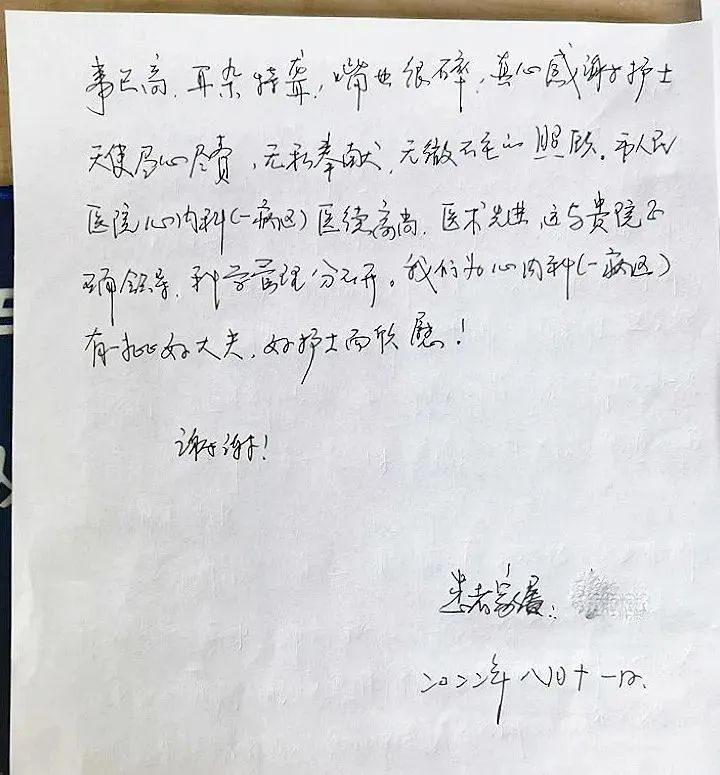 事已高，耳朵特聋，嘴也很碎，真心感谢护士
天使尽心尽责，无私奉献，无微不至的照顾。市人民
医院心内科（一病区）医德高尚，医术先进，这与贵院正
确领导，科学管理分不开。我们为心内科（一病区）
有一批好大夫，好护士而欣慰！
谢谢！
患者家属：
二〇二二年八月十一日.